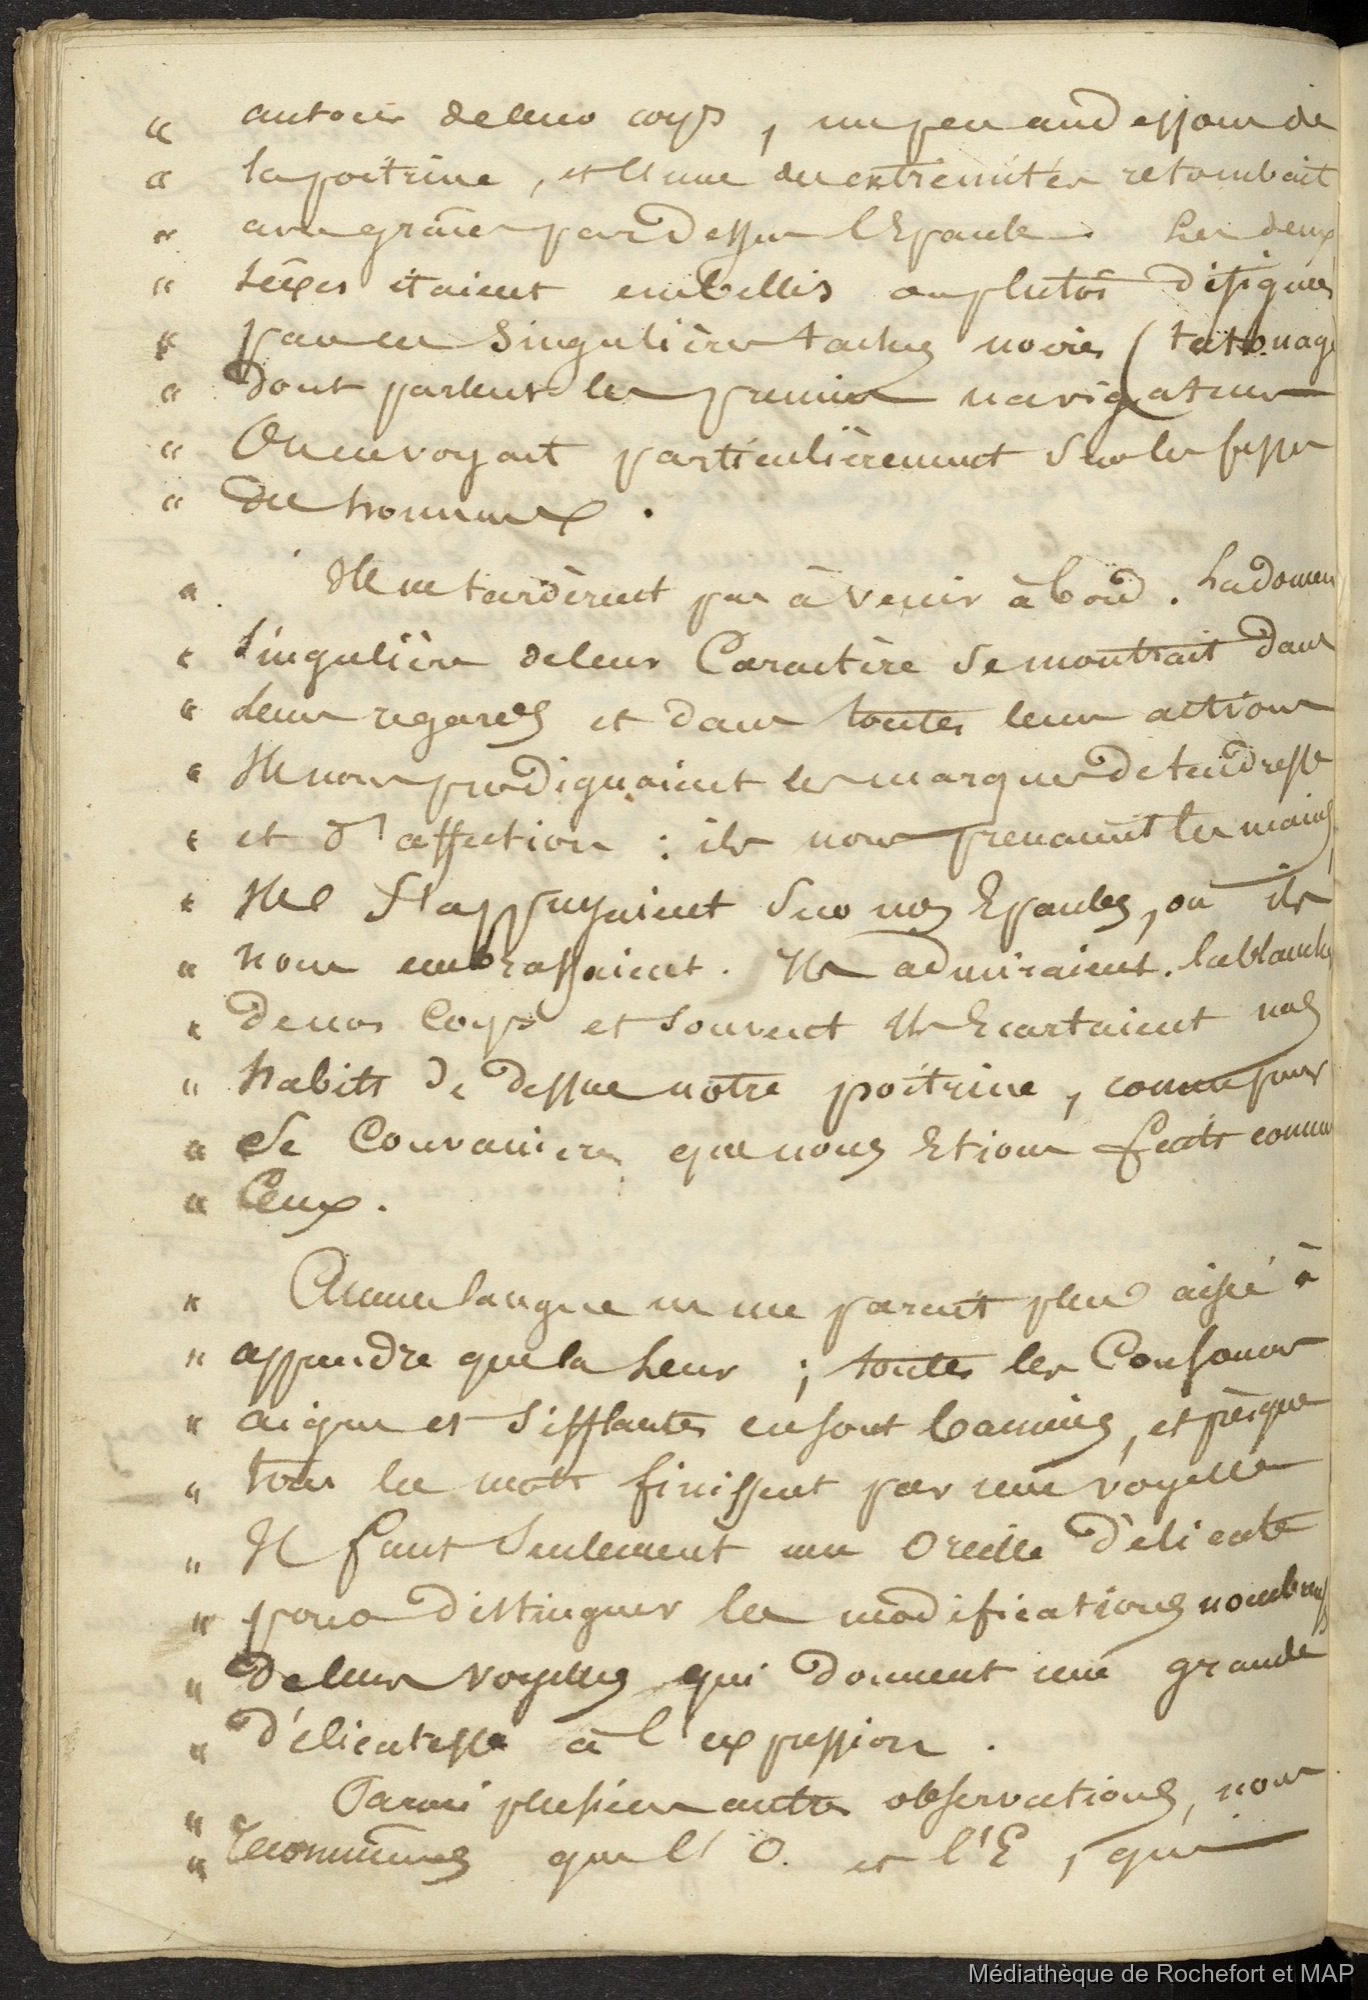 « autour de leur corps, un peu audessous de
« la poitrine, et l'une des extremités retombait
« avec grâce par dessus l'Epaule. Les deux
« sexes étaient embellis ou plutôt désignés
« par ces singulières taches noires (tatouage
« dont parlent les premiers navigateurs
« On en voyait particulièrement sur les fesses
« des hommes.
« Ils ne tardèrent pas à venir à bord. La douceur
« singulière de leur Caractère se montrait dans
« Leurs regards et dans toutes leurs actions
« Ils nous prodiguaient les marques de tendresse
« et d'affection : ils nous prenaient les mains,
« Ils s'appuyaient sur nos Epaules, ou ils
« nous embrassaient. Ils admiraient la blancheur
« de nos Corps et souvent Ils Ecartaient nos
« habits de dessus notre poitrine, comme pour
« Se Convaincre que nous Etions faits comme
« Ceux.
« Aucune langue ne me parait plus aisée à
« apprendre que la Leur ; toutes les Consones
« aigues et sifflantes en sont bannies, et presque
« tous les mots finissent par une voyelle
« Il faut seulement une oreille délicate
« pour distinguer les modifications nombreuses
« de leurs voyelles qui donnent une grande
« délicatesse à l'expression.
« Parmi plusieurs autres observations, nous
« reconnûmes que l'O. et l'E, qui
Médiathèque de Rochefort et MAP